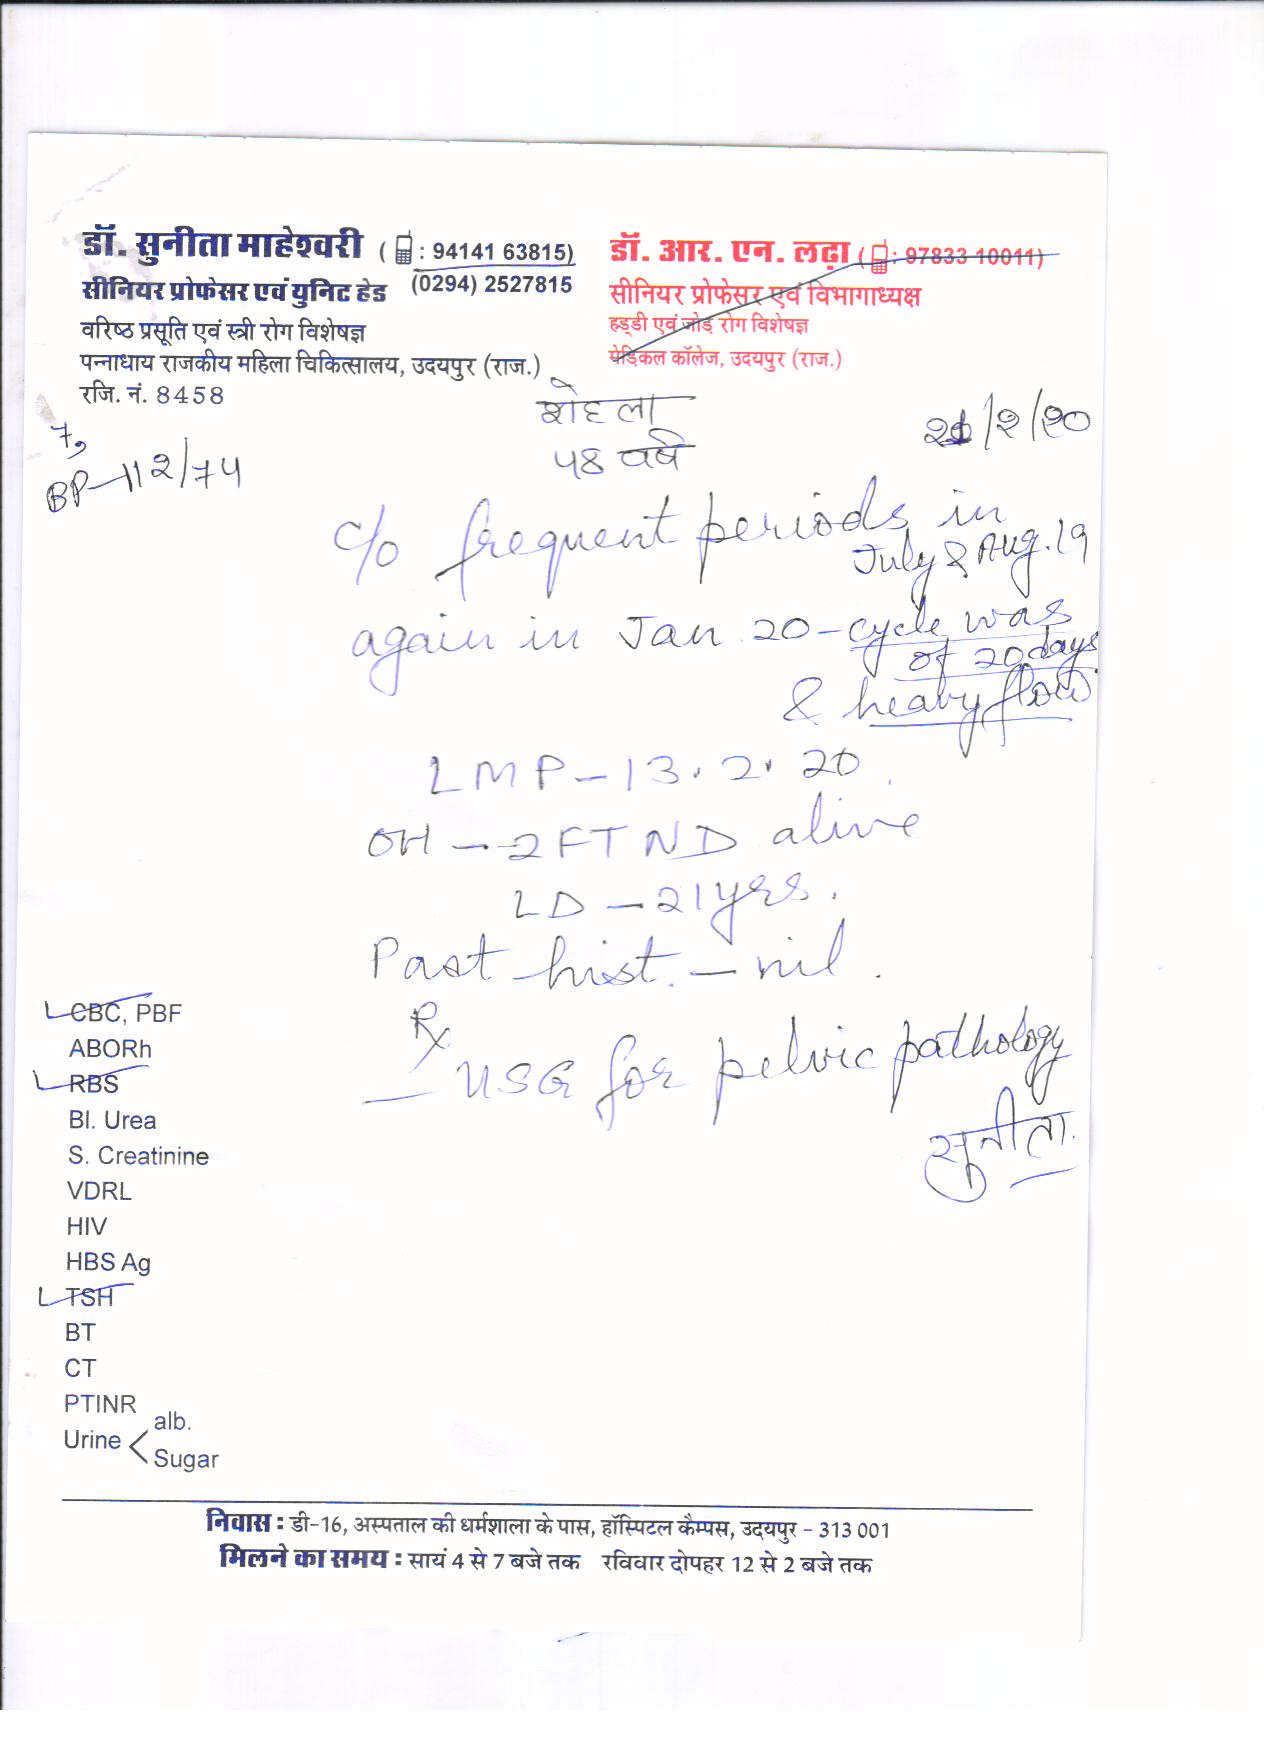 डॉ. सुनीता माहेश्वरी (: 94141 63815)
सीनियर प्रोफेसर एवं युनिट हेड (0294) 2527815
वरिष्ठ प्रसूति एवं स्त्री रोग विशेषज्ञ
पन्नाधाय राजकीय महिला चिकित्सालय, उदयपुर (राज.)
रजि. नं. 8458
डॉ. आर. एन. लढ़ा (: 97833 10011)
सीनियर प्रोफेसर एवं विभागाध्यक्ष
हड्डी एवं जोड़ रोग विशेषज्ञ
मेडिकल कॉलेज, उदयपुर (राज.)
/2/20
वर्ष
BP-112/74
c/o frequent periods in
July & Aug. 19
again in Jan 20 - cycle was
of 20 days
& heavy flow
LMP - 13.2.20
OH - 2 FTND alive
LD - 21 yrs.
Past hist. - nil.
Rx
- USG for pelvic pathology
सुनीता
CBC, PBF
ABORh
RBS
Bl. Urea
S. Creatinine
VDRL
HIV
HBS Ag
TSH
BT
CT
PTINR
Urine < alb.
Sugar
निवास : डी-16, अस्पताल की धर्मशाला के पास, हॉस्पिटल कैम्पस, उदयपुर - 313 001
मिलने का समय : सायं 4 से 7 बजे तक रविवार दोपहर 12 से 2 बजे तक